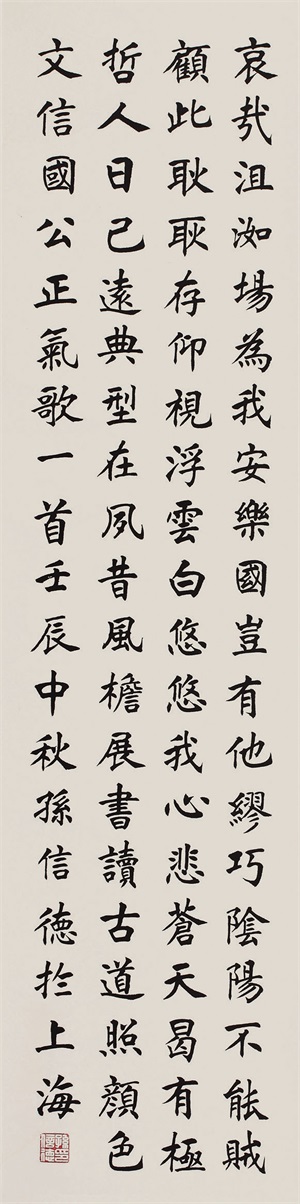 哀哉沮洳場為我安樂國豈有他繆巧陰陽不能賊
顧此耿耿存仰視浮雲白悠悠我心悲蒼天曷有極
哲人日已遠典型在夙昔風檐展書讀古道照顏色
文信國公正氣歌一首壬辰中秋孫信德於上海